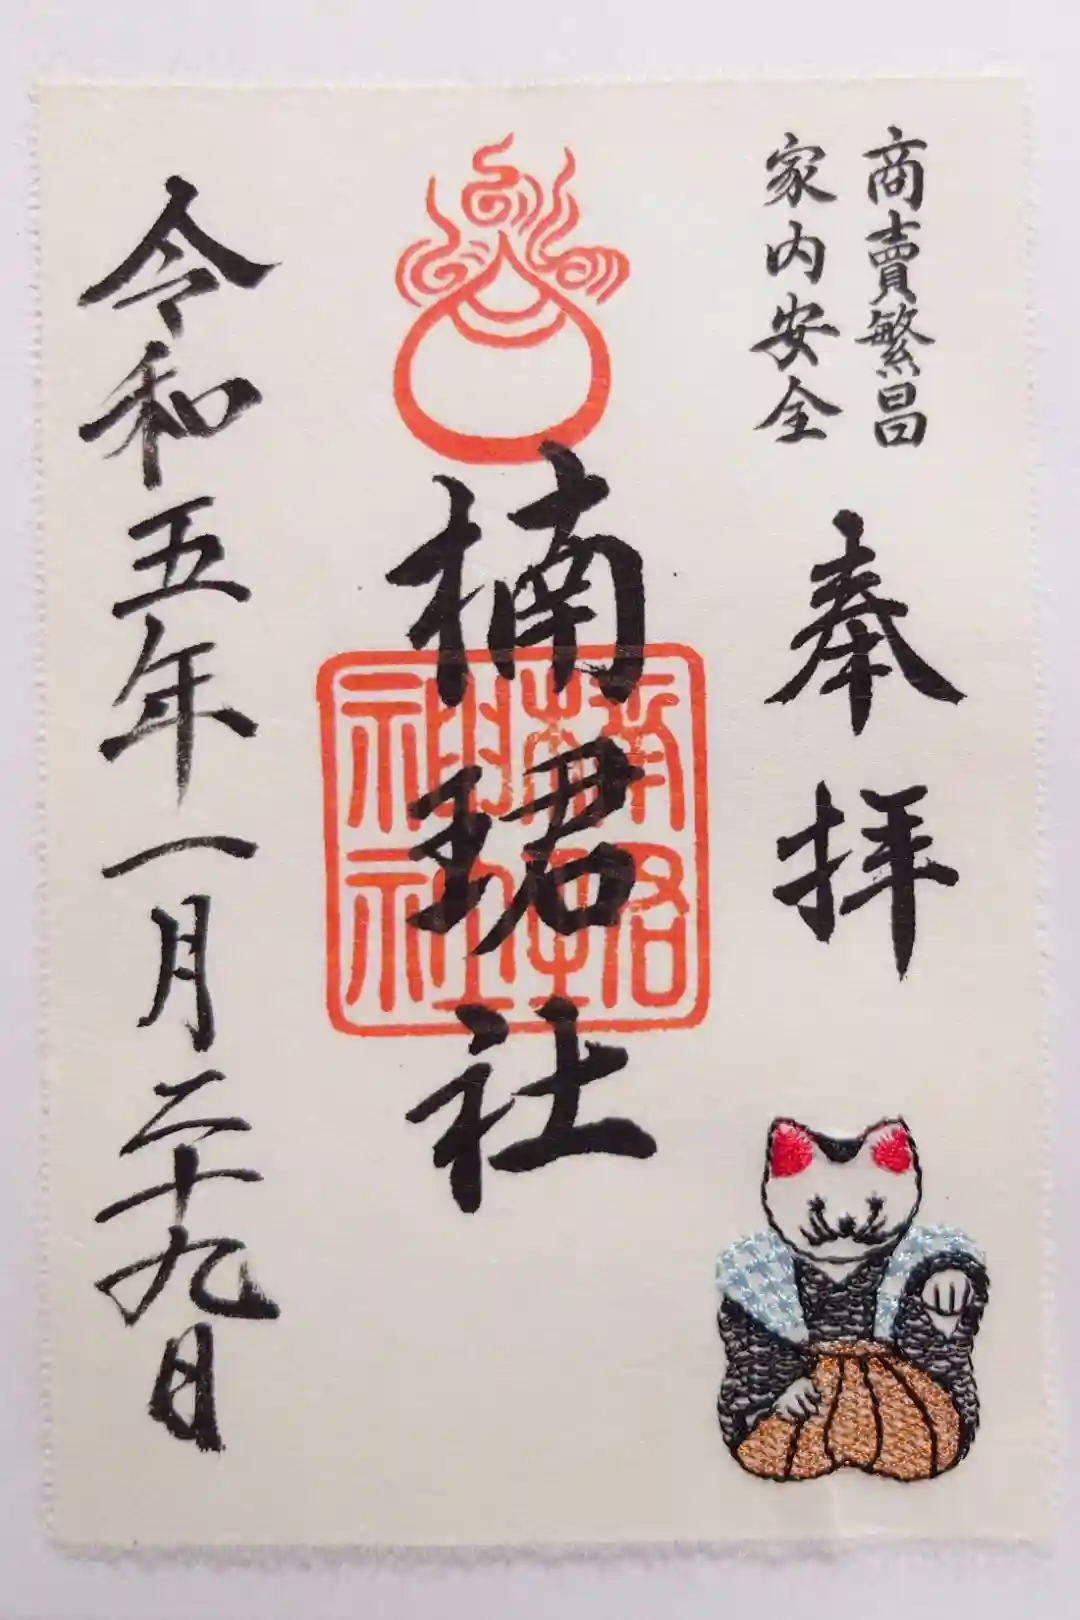 商賣繁昌
家内安全
奉拝
楠珺社
令和五年一月二十九日